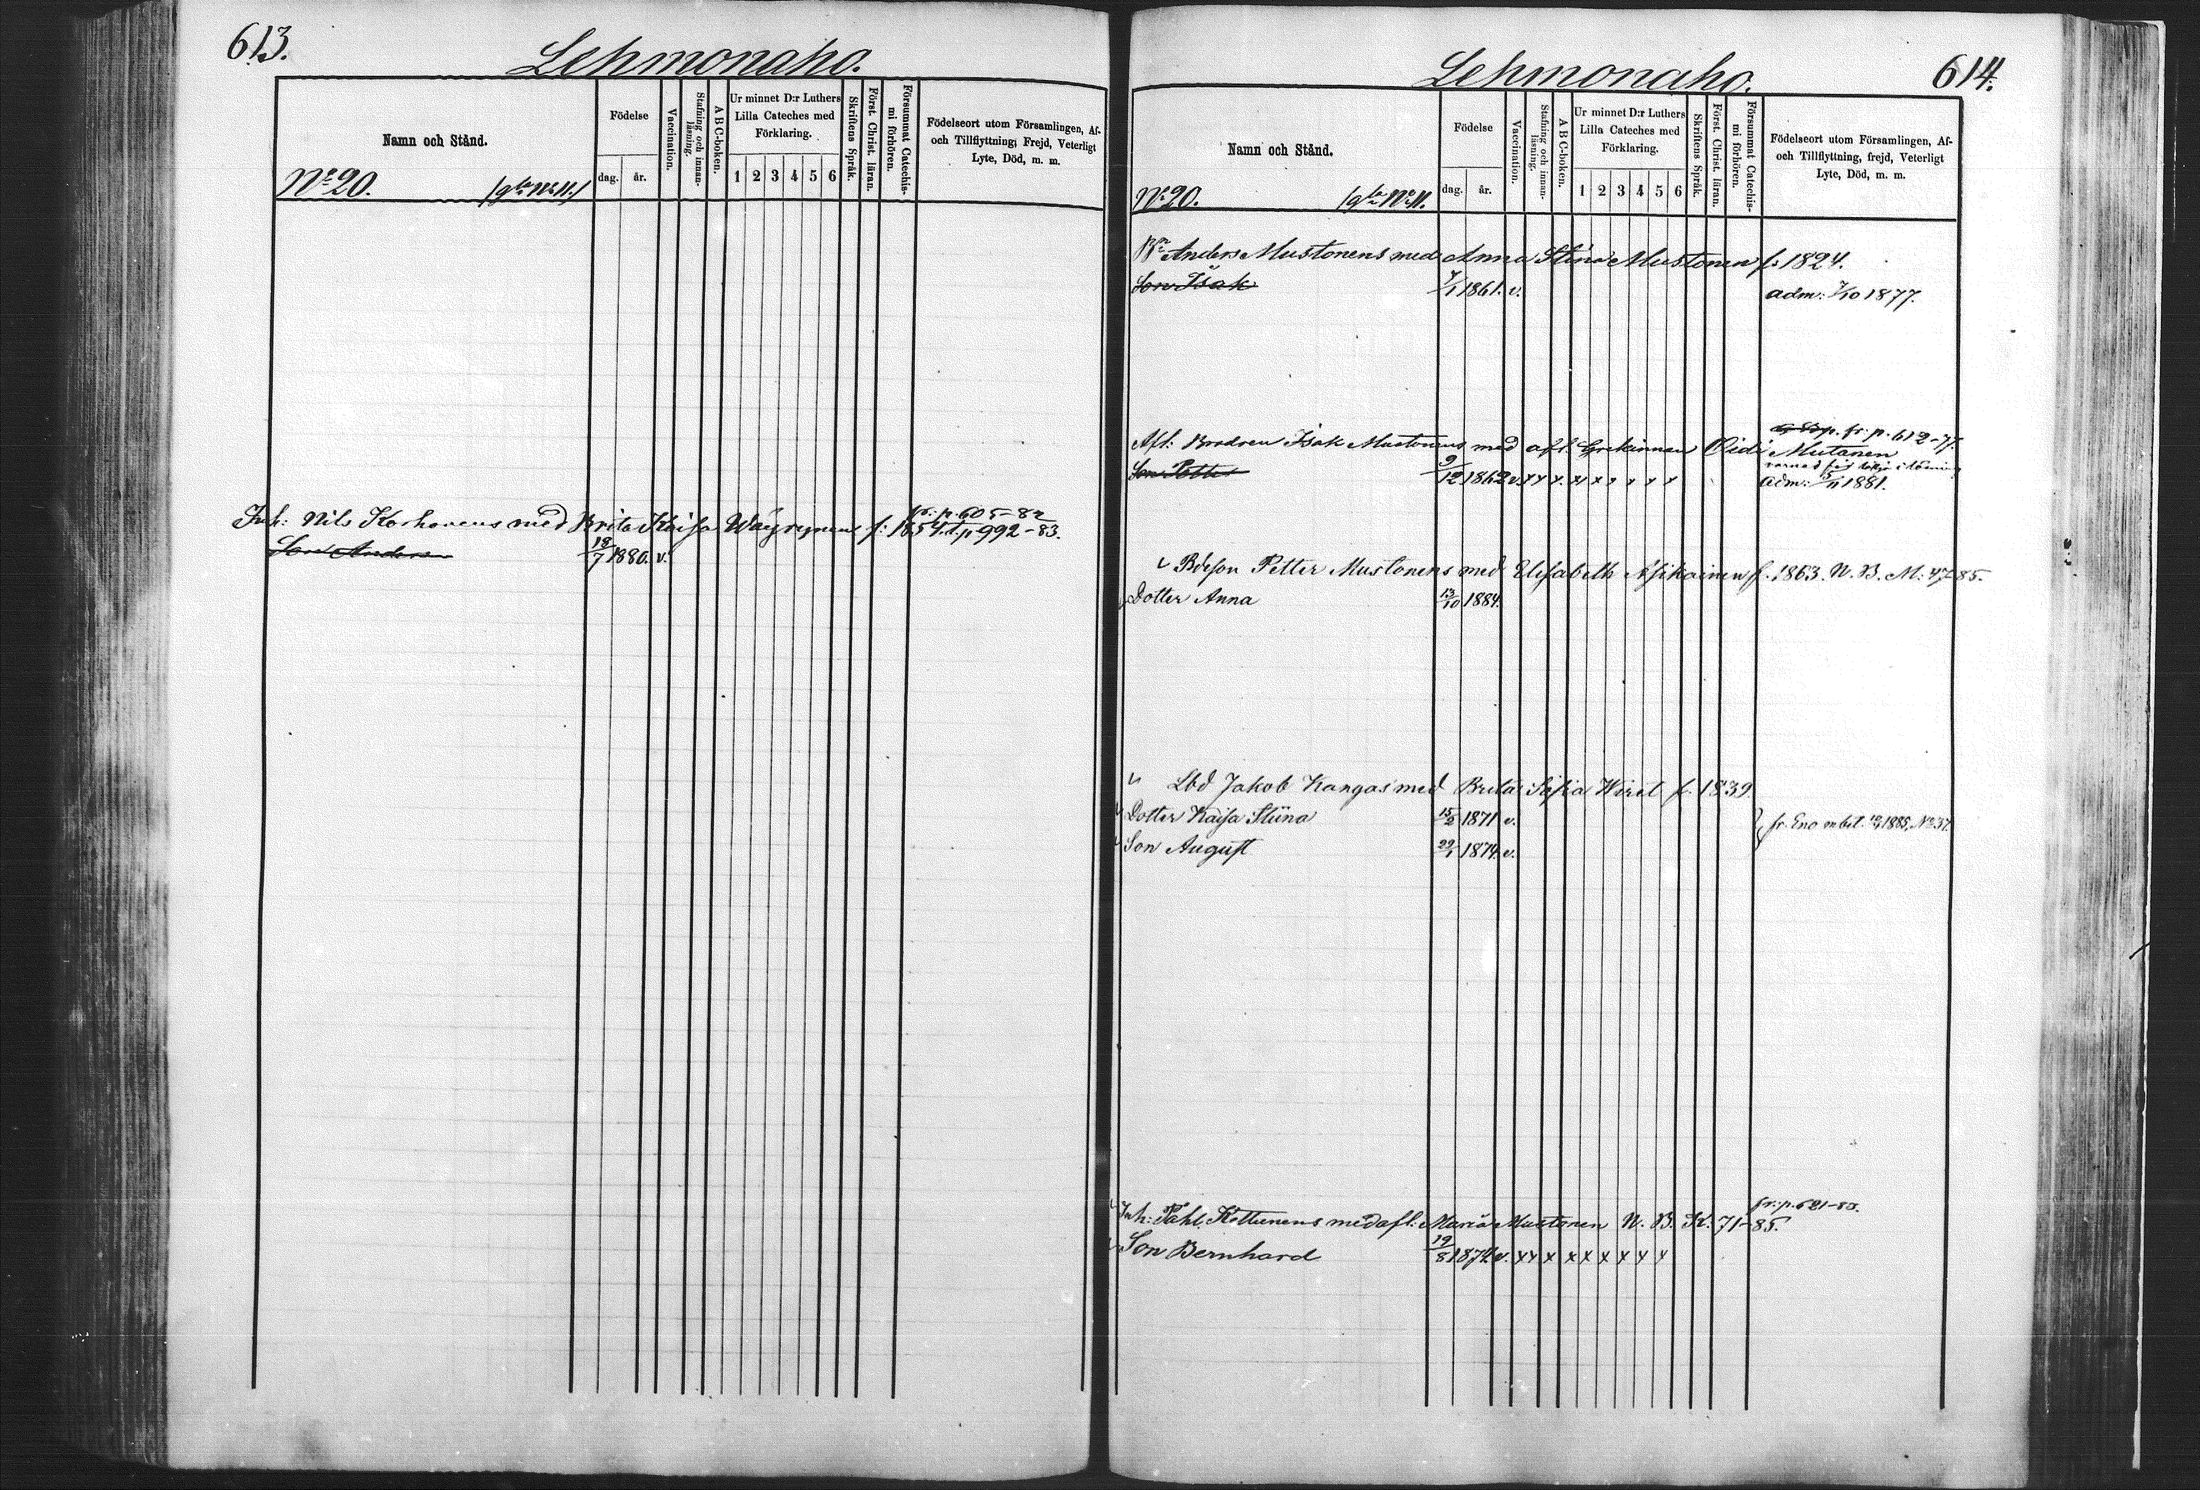 613.
Lehmonaho.
Namn och Stånd.
Födelse
dag.
år.
Vaccination.
Stafning och innan-
läsning.
A B C-boken.
Ur minnet D:r Luthers
Lilla Cateches med
Förklaring.
1 2 3 4 5 6
Skriftens Språk.
Först. Christ. läran.
Försummat Catechis-
mi förhören.
Födelseort utom Församlingen, Af-
och Tillflyttning; Frejd, Veterligt
Lyte, Död, m. m.
No 20. /gla No 11./
fr. p. 605-82
Inh: Nils Korhonens med Brita Kaisa Wäyrynen f: 1854. t. p 992-83.
Son Anders 18/7 1880. v.
Lehmonaho.
614.
Namn och Stånd.
Födelse
dag.
år.
Vaccination.
Stafning och innan-
läsning.
A B C-boken.
Ur minnet D:r Luthers
Lilla Cateches med
Förklaring.
1 2 3 4 5 6
Skriftens Språk.
Först. Christ. läran.
Försummat Catechis-
mi förhören.
Födelseort utom Församlingen, Af-
och Tillflyttning, frejd, Veterligt
Lyte, Död, m. m.
No 20. /gla No 11.
Bn Anders Mustonens med Anna Stina Mustonen f: 1824.
Son Isak 1861. v. adm: 7/10 1877.
fr. p. 612-77.
Afl: Brodren Isak Mustonens med afl. Grekinnan Oidi Mutanen
Son Petter 9/12 1862 v. x x x x x x x x x adm: 1881.
Bdeson Petter Mustonens med Elisabeth Asikainen f. 1863. N. B. M: 47-85.
Dotter Anna 13/10 1884.
Lbd Jakob Kangas med Brita Sofia Wiret f. 1839
Dotter Kaisa Stiina 15/2 1871 v.
fr. Eno m bet. 1885, No 37.
Son August 22/1 1874. v.
fr: p. 621-85.
Inh: Påhl Kettunens med afl: Maria Mustonen N. B. K. 71-85.
Son Bernhard 19/8 1874 v. x x x x x x x x x